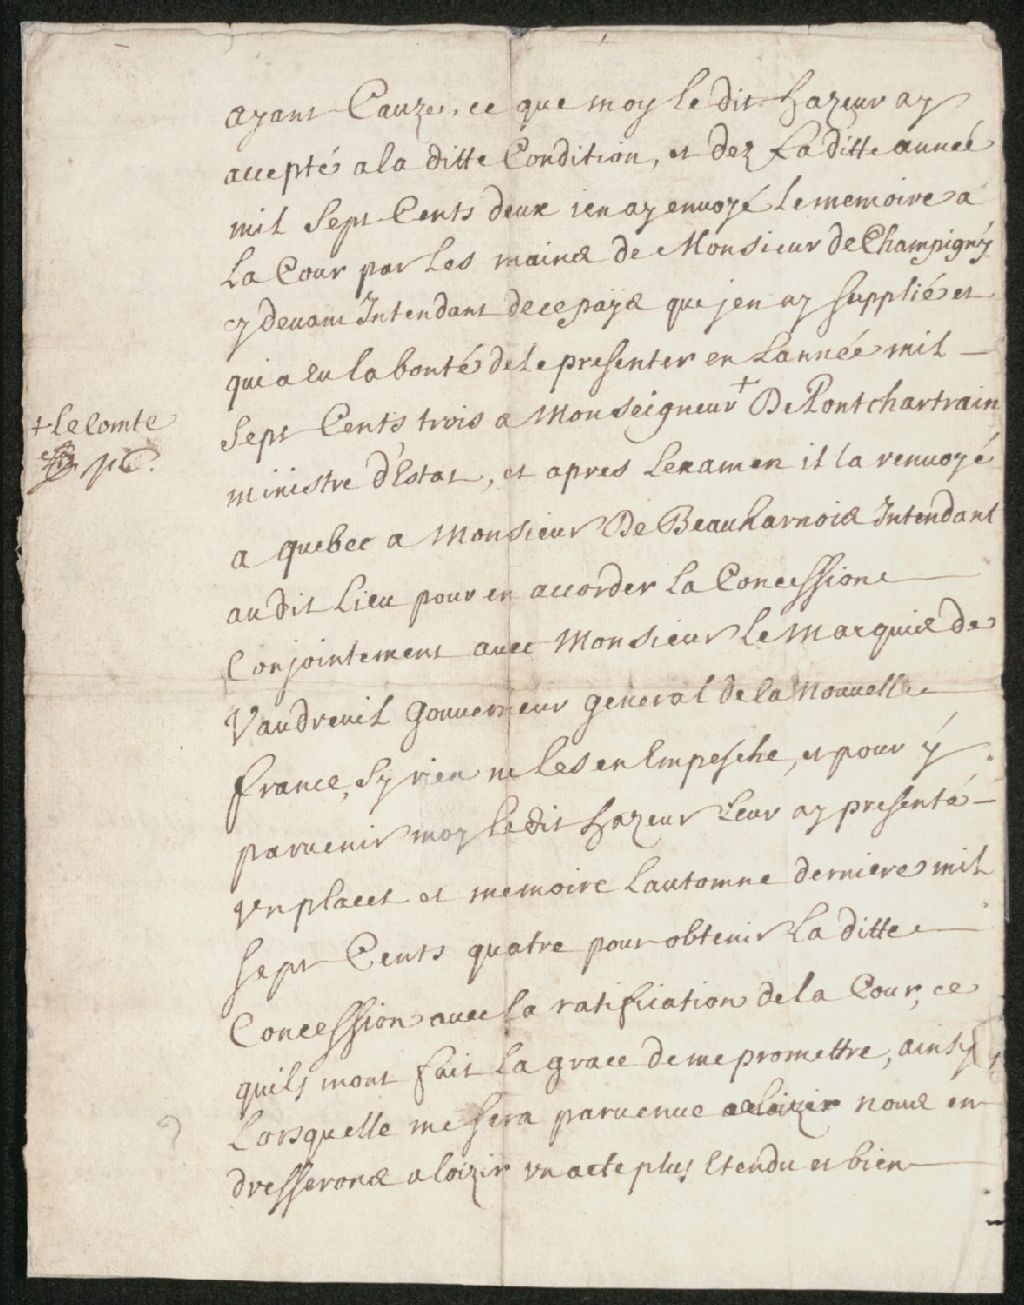 ayant Cauze, ce que moy le dit hazeur ay
accepté a la ditte Condition, et dez La ditte année
mil Sept Cents deux ien ay envoyé Le memoire a
La Cour par Les mains de Monsieur de Champigny
cy devant Intendant de ce pays que jen ay supplié et
qui a eu la bonté de le presenter en Lannée mil
Sept Cents trois a Monseigneur + De Pontchartrain
+ le Comte
ministre d'Estat, et apres Lexamen il la renvoyé
a quebec a Monsieur De Beauharnois Intendant
au dit Lieu pour en accorder La Concession
Conjointement avec Monsieur le Marquis de
Vaudreuil gouverneur general de la Nouvelle
france, Sy rien ne Les en Empesche, et pour y
parvenir moy le dit hazeur Leur ay presenté
vn placet et memoire Lautomne derniere mil
Sept Cents quatre pour obtenir La ditte
Concession avec la ratification de la Cour, ce
quils mont fait La grace de me promettre, ainsy
Lorsquelle me sera parvenue nous en
dresserons a loizir vn acte plus Etendu et bien